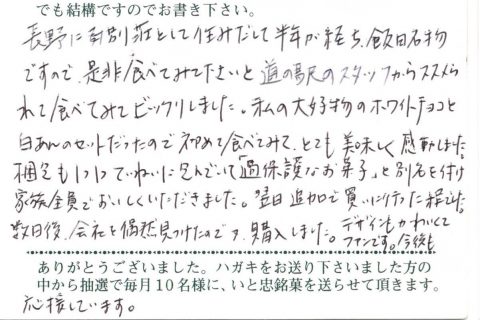 でも結構ですのでお書き下さい。
長野に別荘として住みだして半年が経ち、飯田名物
ですので、是非食べてみて下さいと道の駅のスタッフからススメら
れて食べてみてビックリしました。私の大好物のホワイトチョコと
白あんのセットだったので初めて食べてみて、とても美味しく感動しました。
梱包も1つ1つていねいに包んでいて「過保護なお菓子」と別名を付け
家族全員でおいしくいただきました。翌日追加で買いに行った程でした。
数日後、会社を偶然見つけたので又、購入しました。デザインもかわいくて
ファンです。今後も
ありがとうございました。ハガキをお送り下さいました方の
中から抽選で毎月10名様に、いと忠銘菓を送らせて頂きます。
応援しています。